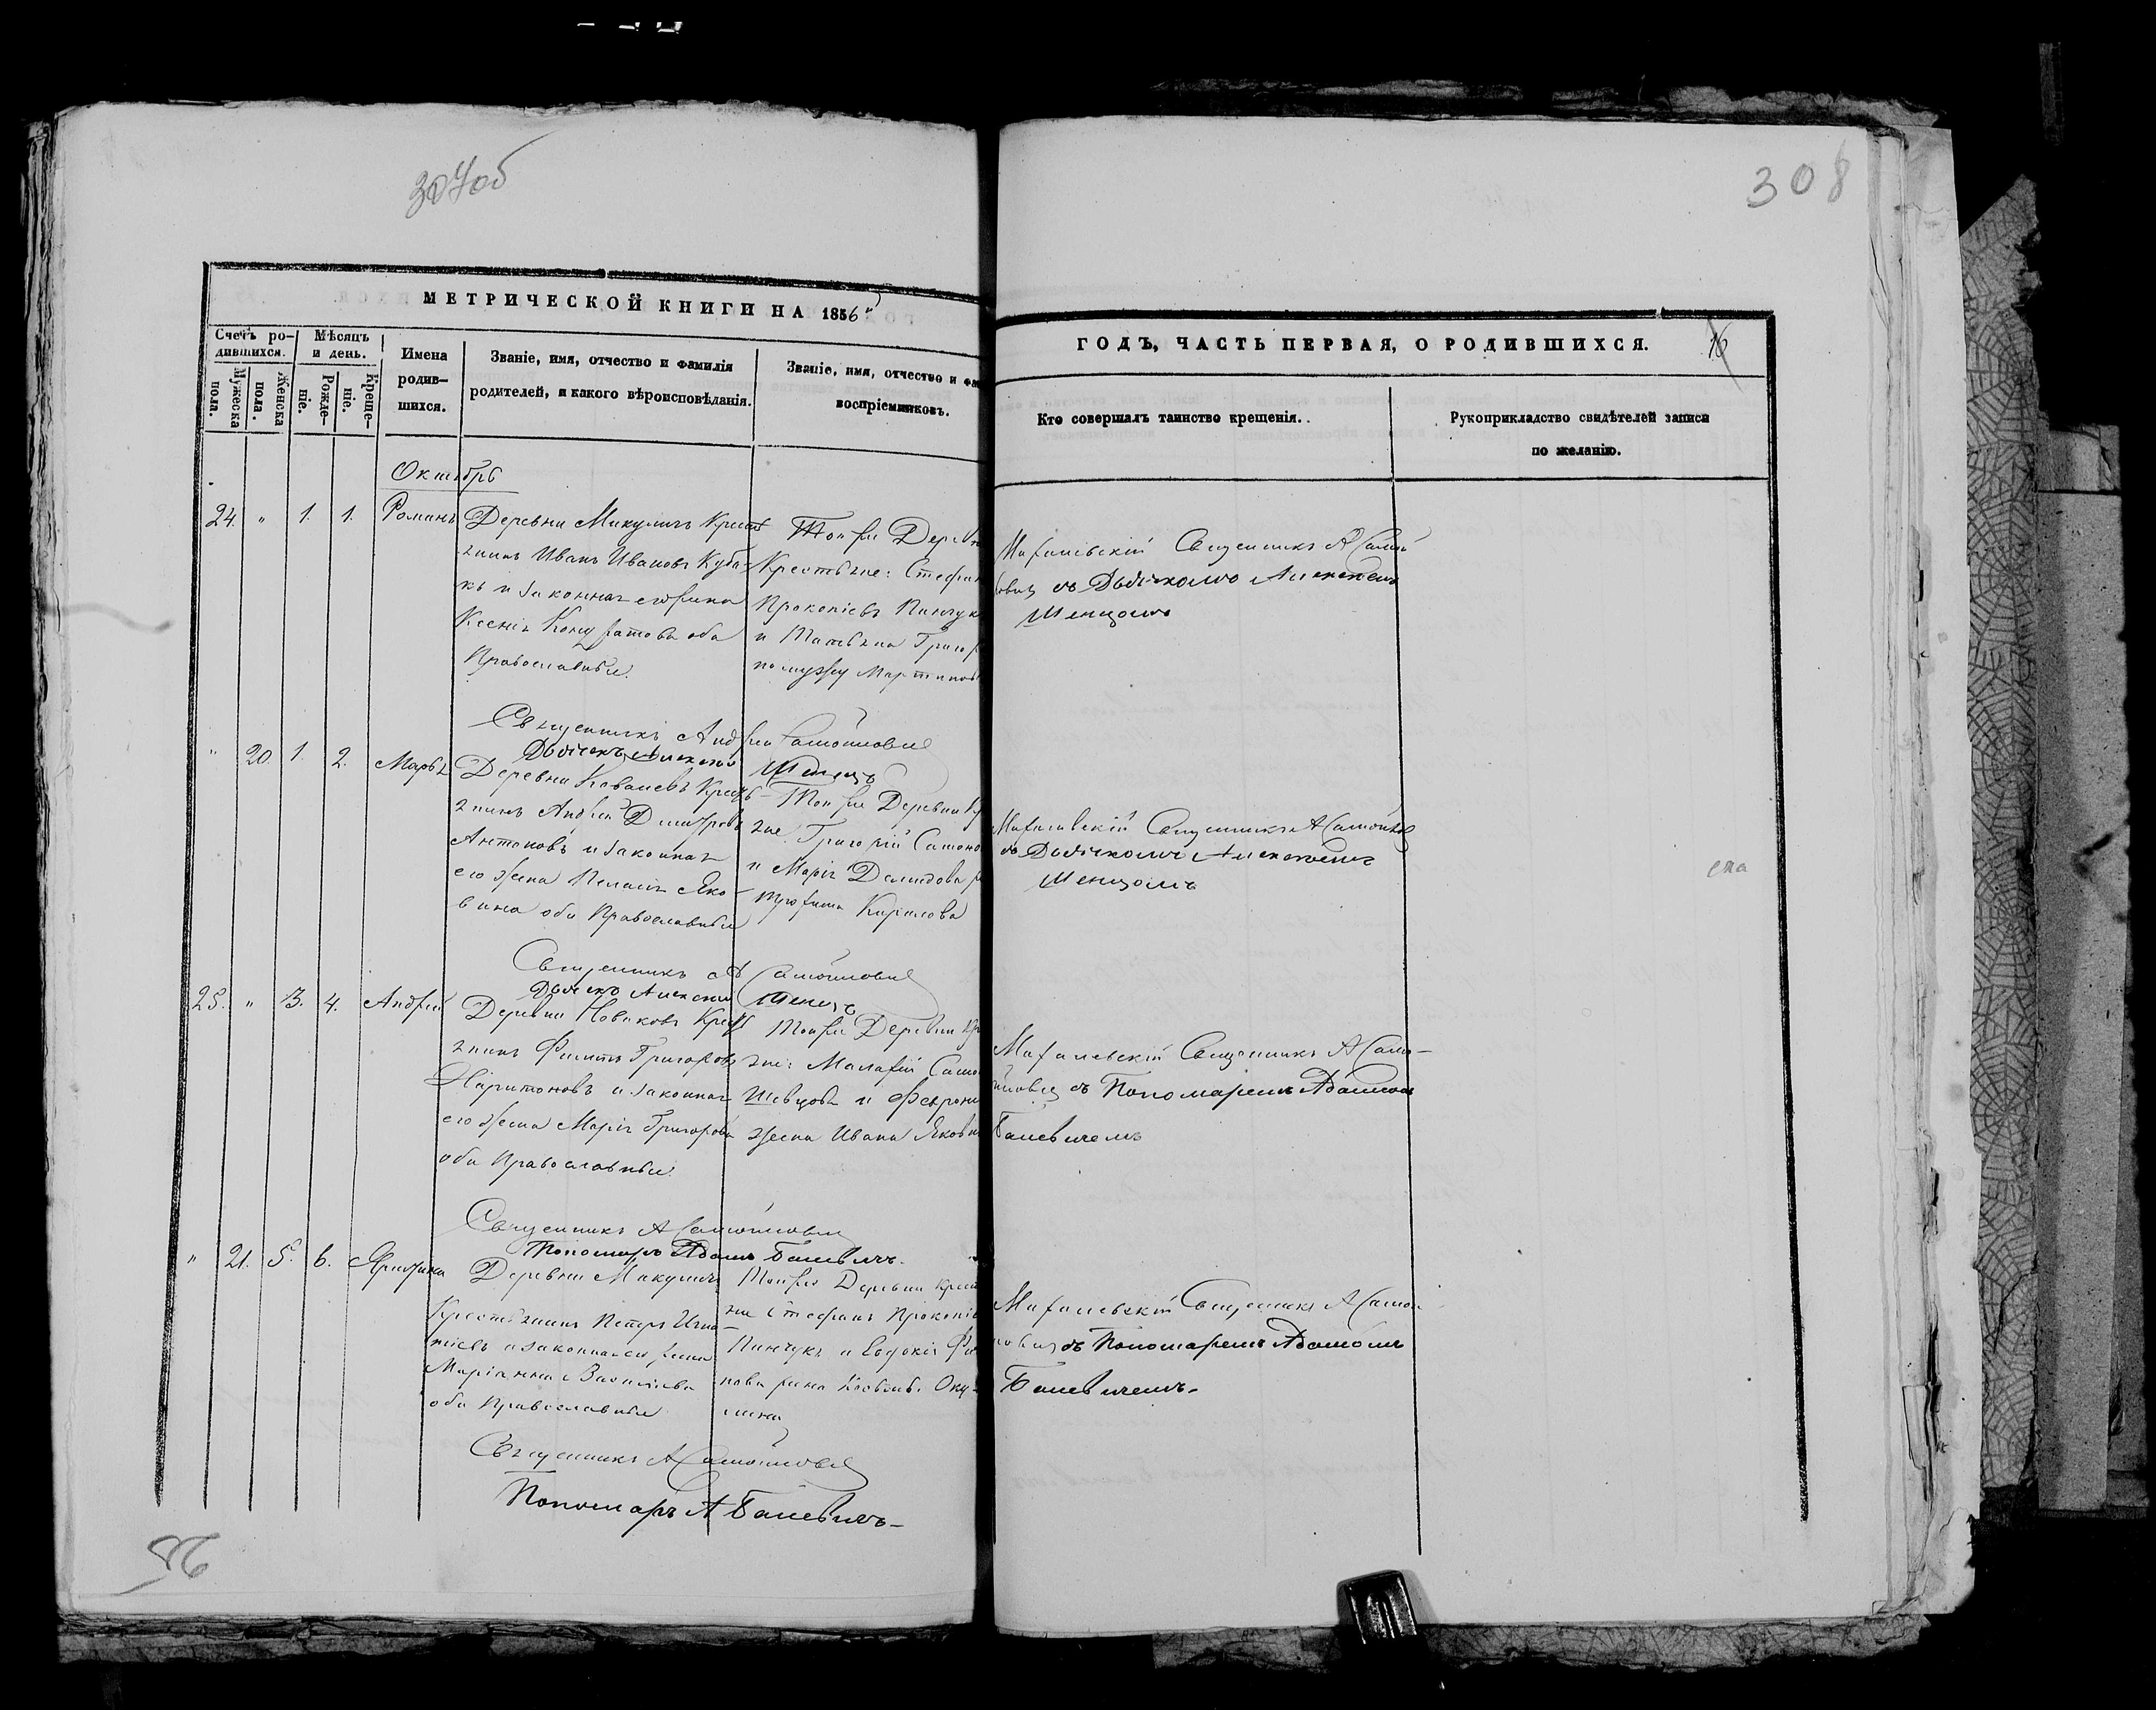 307об
308
МЕТРИЧЕСКОЙ КНИГИ НА 1856
Счетъ ро-
дившихся.
Мужеска пола.
Женска пола.
Мѣсяцъ
и день.
Рожде-
ніе.
Креще-
ніе.
Имена
родив-
шихся.
Званіе, имя, отчество и фамилія
родителей, и какого вѣроисповѣданія.
Званіе, имя, отчество и фа
воспріемниковъ.
Октябрь
24. " 1. 1. Романъ
Деревни Микуличъ Крестья
нинъ Иванъ Ивановъ Куба-
къ и законная его жена
Ксенія Кондратова оба
Православные.
Той же Дерев
Крестьяне: Стефан
Прокопіевъ Пинчук
и Татьяна Григор
по мужу Мартинов
Священникъ Андрей Самойловичъ
Дьячекъ Алексей Шенецъ
" 20. 1. 2. Марья
Деревни Ковалевъ Кресть-
янинъ Андрей Димитровъ
Антоновъ и законная
его жена Пелагія Яко-
влева оба Православные
Той же Деревни
яне Григорій Самон
и Марія Демидова
Трофима Кирилова
Священникъ А Самойловичъ
Дьячекъ Алексей Шенецъ
25. " 3. 4. Андрей
Деревни Новиковъ Крест
янинъ Филипъ Григоровъ
Харитоновъ и законная
его жена Марія Григорова
оба Православные.
Той же Деревни
яне: Малафій Само
Шевцовъ и Феврони
жена Ивана Яковл
Священникъ А Самойловичъ
Пономарь Адамъ Балевичъ.
" 21. 5. 6.
Деревни Микуличъ
Крестьянинъ Петръ Игна-
тіевъ и законная его жена
Маріанна Васильева
оба Православные
Той же Деревни Крест
не Стефанъ Прокопіе
Пинчукъ и Евдокія
Священникъ А Самойловичъ
Пономарь А Балевичъ-
56
ГОДЪ, ЧАСТЬ ПЕРВАЯ, О РОДИВШИХСЯ.
16
Кто совершалъ таинство крещенія.
Рукоприкладство свидѣтелей записи
по желанію.
Священникъ А Самой
ловичъ съ Дьячкомъ Алексеемъ
Шенцомъ
Священникъ А Самойлов
съ Дьячкомъ Алексеемъ
Шенцомъ
Священникъ А Само-
йловичъ съ Пономаремъ Адамомъ
Балевичемъ
Священникъ А Самой
ловичъ съ Пономаремъ Адамомъ
Балевичемъ-